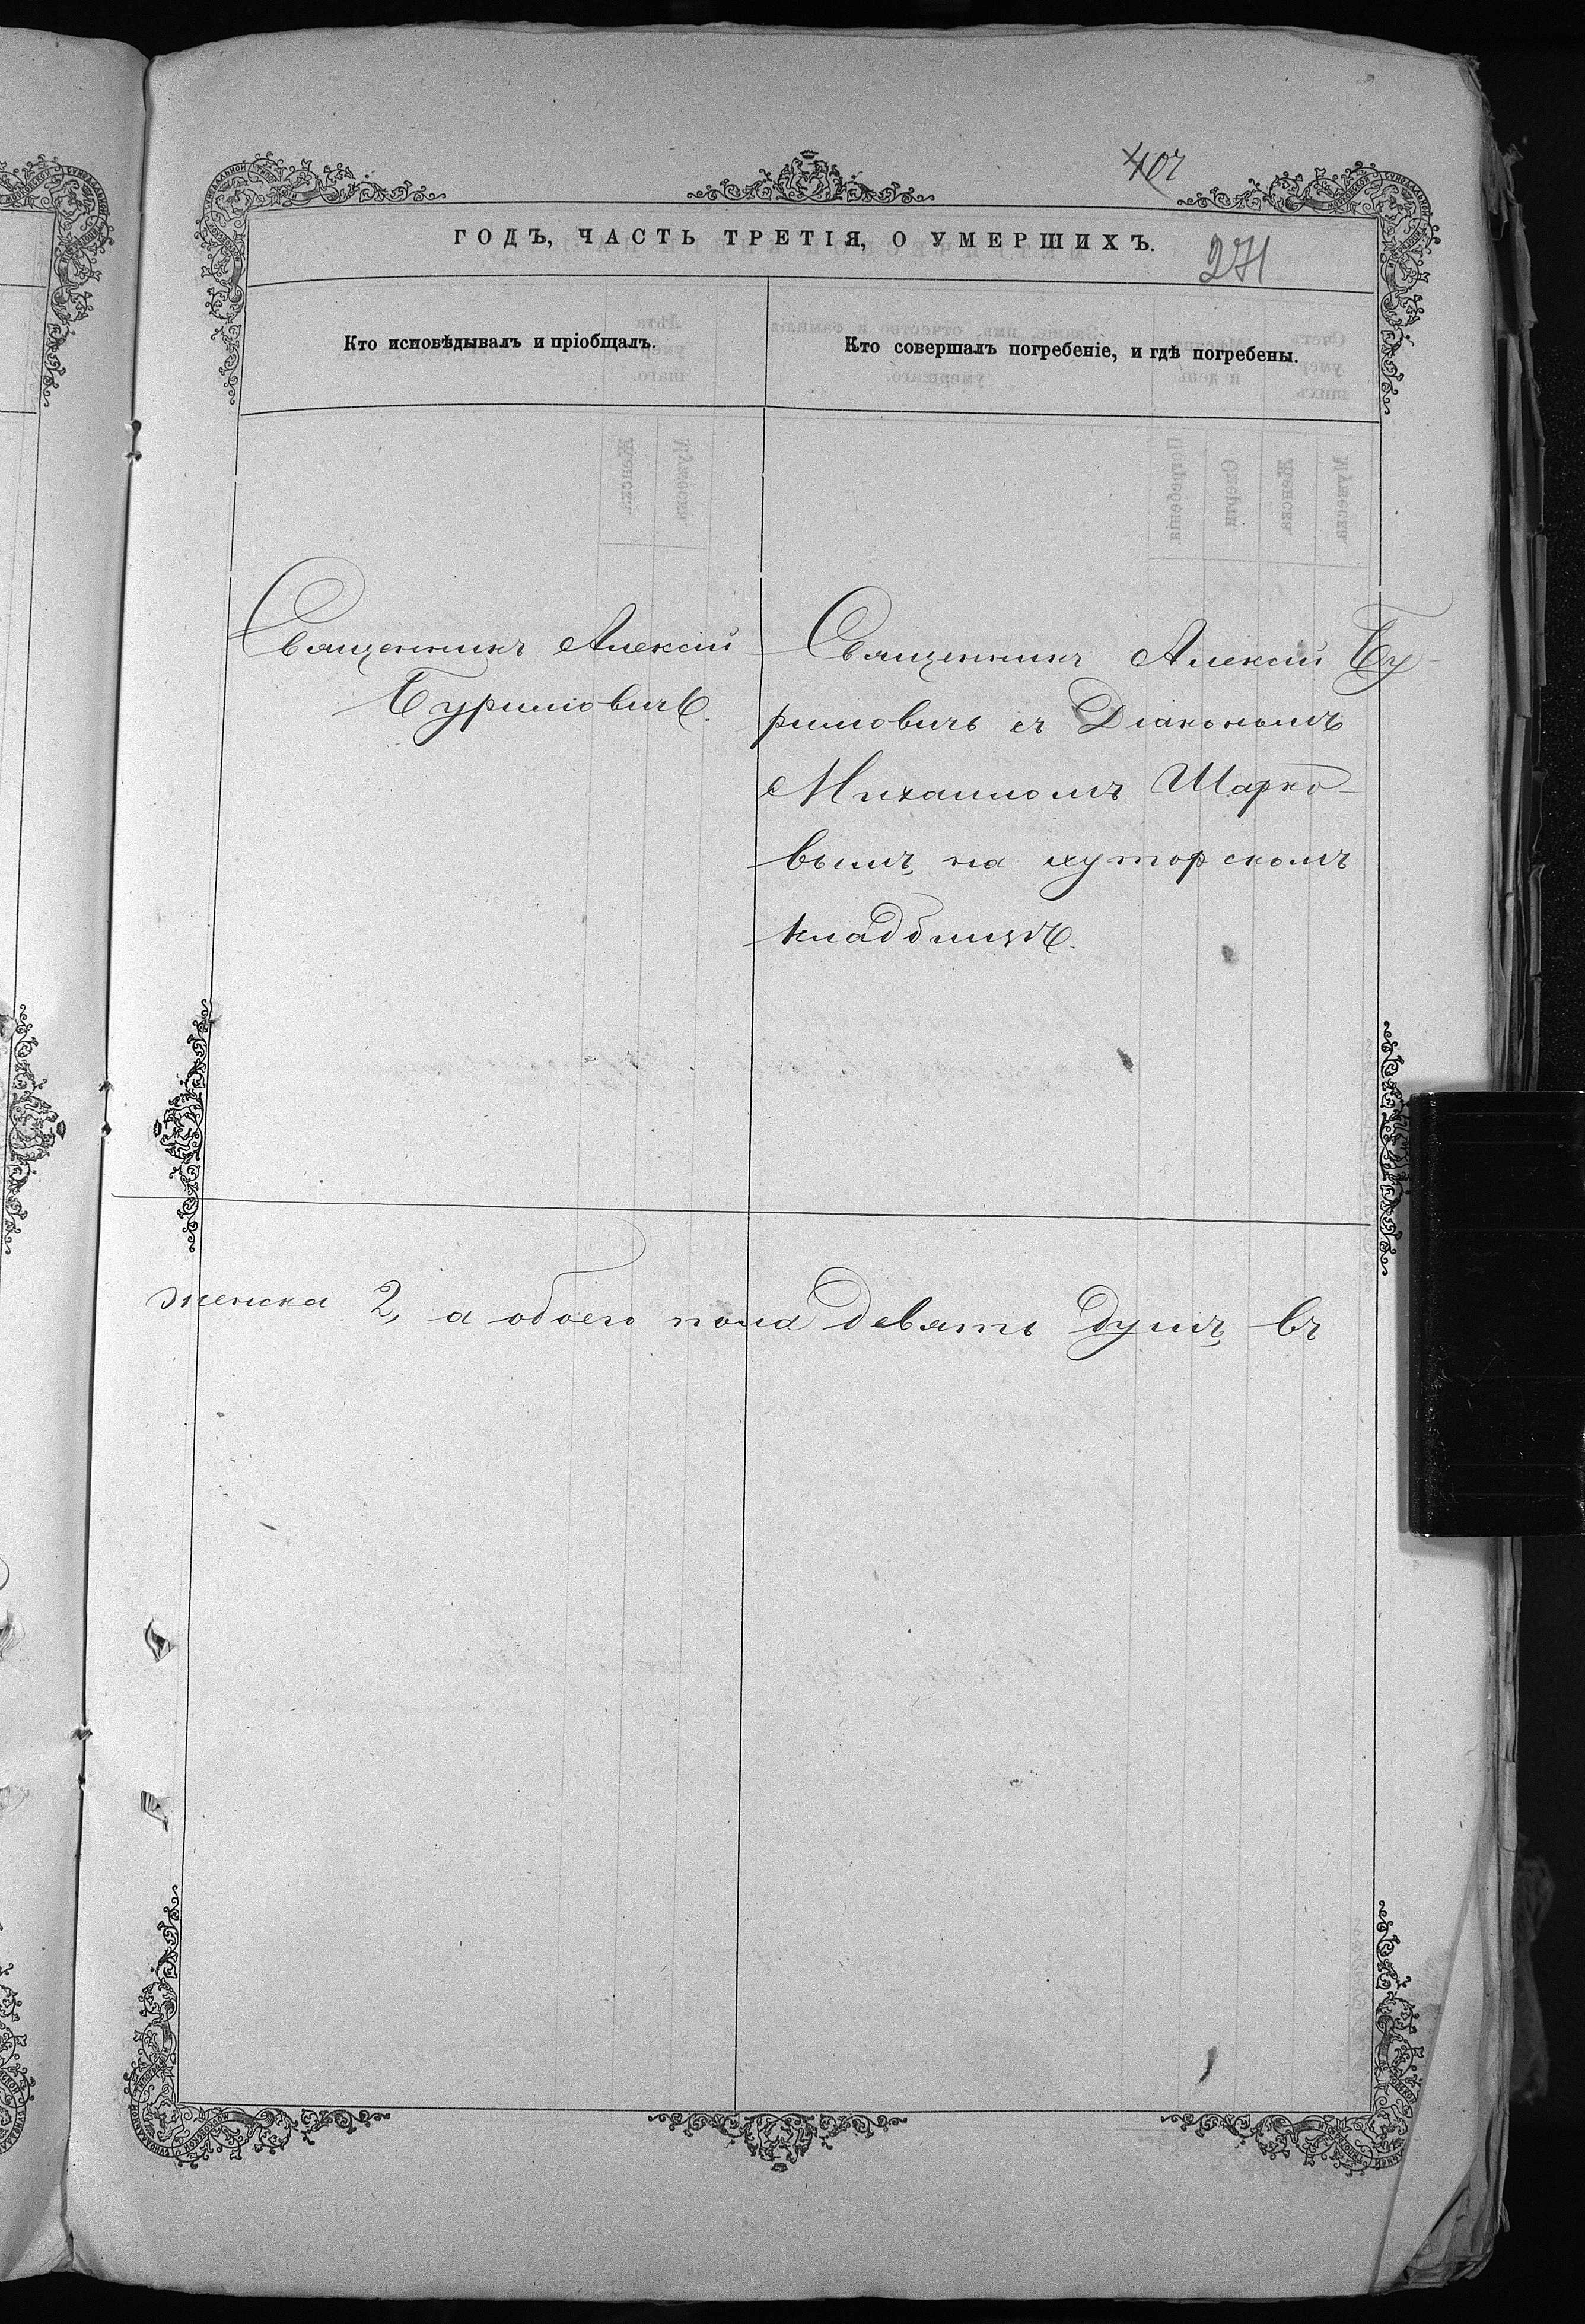 407
ГОДЪ, ЧАСТЬ ТРЕТІЯ, О УМЕРШИХЪ.
271
Кто исповѣдывалъ и пріобщалъ.
Кто совершалъ погребеніе, и гдѣ погребены.
Священникъ Алексій
Буримовичъ.
Священникъ Алексій Бу-
римовичъ съ Діакономъ
Михаиломъ Шарко-
вымъ, на хуторскомъ
кладбищѣ.
женска 2, а обоего пола девять душъ, въ